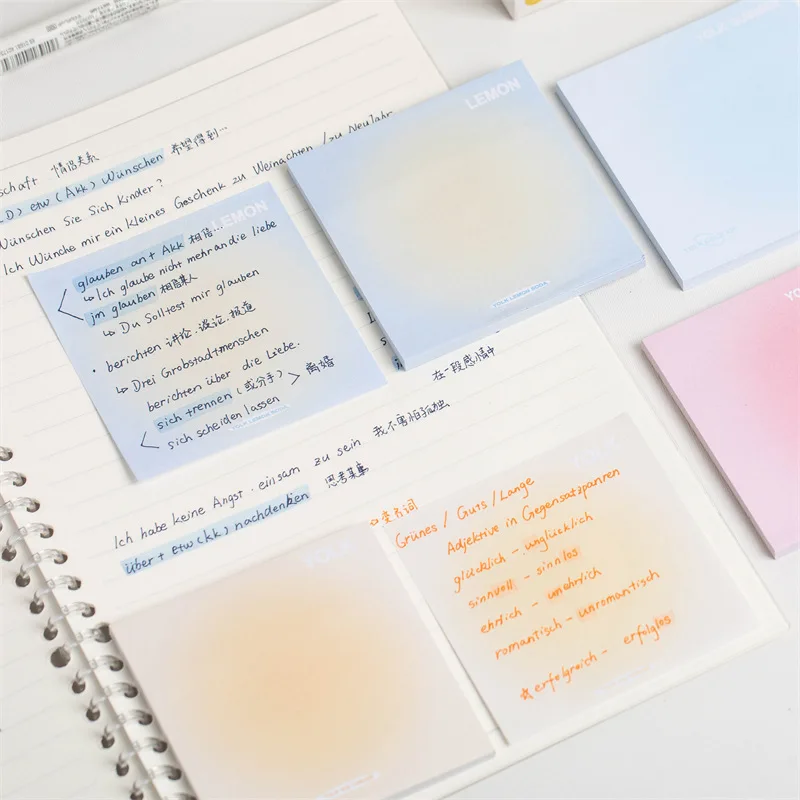 schaft 情侣关系
(D) etw (Akk) Wünschen 希望得到...
Wünschen Sie Sich Kinder?
Ich Wünche mir ein kleines Geschenk zu Weinachten /zu Neujahr
LEMON
glauben an+ Akk 相信...
↳ Ich glaube nicht mehr an die liebe
jm glauben 相信某人
↳ Du Solltest mir glauben
• berichten 讲论.谈论.报道
↳ Drei Grobstadtmenschen
berichten über die Liebe.
sich trennen (或分手) > 离婚
< sich scheiden lassen
YOUR LEMON SODA
LEMON
YOUR LEMON SODA
在一段感情中
Ich habe keine Angst. einsam zu sein 我不害怕孤独
über + etw (kk) nachdenken 思考某事
Grünes / Guts / Lange
Adjektive in Gegensatzpanren
glücklich - unglücklich
sinnvoll - sinnlos
ehrlich - unehrlich
romantisch - unromantisch
☆ erfolgreich - erfolglos